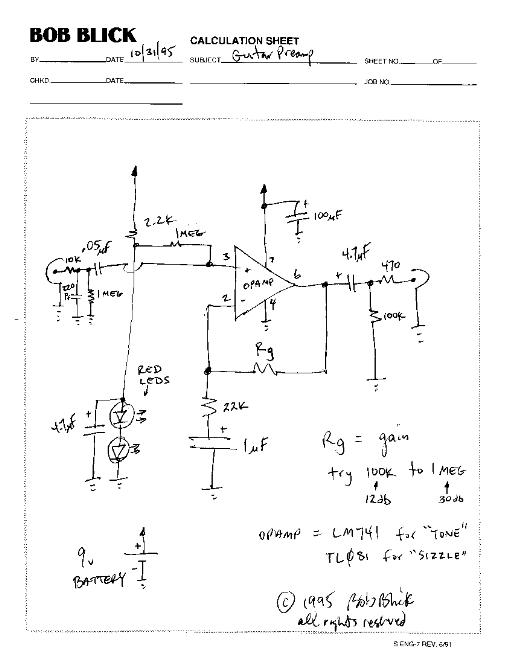 BOB BLICK
CALCULATION SHEET
BY DATE 10/31/95 SUBJECT Guitar Preamp SHEET NO. OF
CHKD. DATE JOB NO.
2.2K
1MEG
100µF
.05µF
10K
220
1 MEG
3
+
7
OPAMP
6
2
-
4
4.7µF
+
470
100K
Rg
RED
LEDS
+
4.7µF
22K
+
1µF
Rg = gain
try 100K to 1 MEG
12db 30db
OPAMP = LM741 for "TONE"
TL081 for "SIZZLE"
9v
BATTERY
+
-
© 1995 Bob Blick
all rights reserved
S ENG-7 REV. 6/91